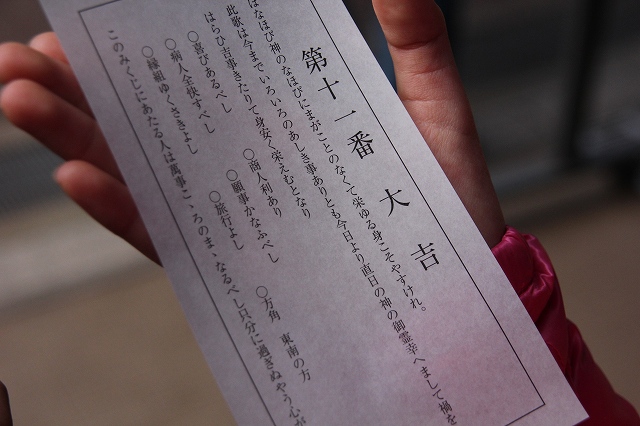 第十一番 大吉
はなほび神のなほびにまがことのなくて栄ゆる身こそやすけれ。
此歌は今までいろいろのあしき事ありとも今日より直日の神の御霊幸へまして禍を
はらひ吉事きたりて身安く栄えむとなり
○喜びあるべし ○商人利あり ○方角 東南の方
○病人全快すべし ○願事かなふべし
○縁組ゆくさきよし ○旅行よし
このみくじにあたる人は萬事こゝろのまゝなるべし只分に過ぎぬやう心が